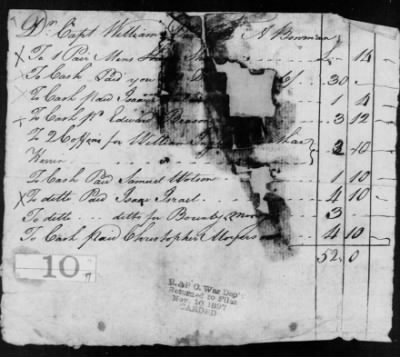 Dr. Capt William A Bowman
X To 1 Pair Mens 14
To Cash Paid you 30
To Cash paid Isaac 1 4
X To Cash pd Edward 3 12
To 2 Coffins for William
Warren 3 10
To Cash Paid Samuel Wolson 1 10
X To ditto Paid Isaac Israel 4 10
To ditto ditto for Bounty Mony 3
To Cash paid Christopher Moyers 4 10
52 0
10
R. & P. O. War Dep't
Returned to Files
Nov. 10 1897
CARDED